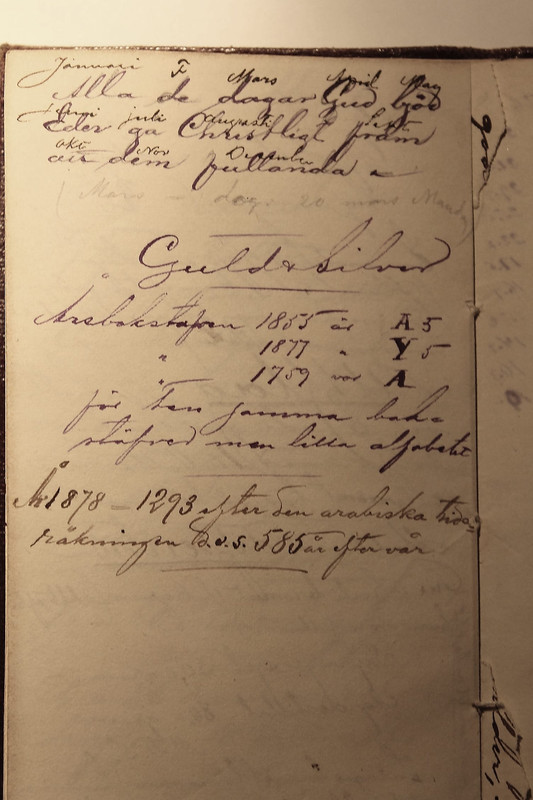 Januari F Mars April May
Alla de dagar Gud bjöd
Juni juli Augusti Sept
Eder gå Christligt fram
Okt Nov December
och dem fullända
Mars – dag. 20 mars
Guld & Silver
Årsbokstafven 1855 är A 5
" 1877 " Y 5
" 1759 var A
för Tenn samma bok=
stäfver men lilla alfabetet
År 1878 – 1293 efter den arabiska tide=
räkningen d.v.s. 585 år efter vår